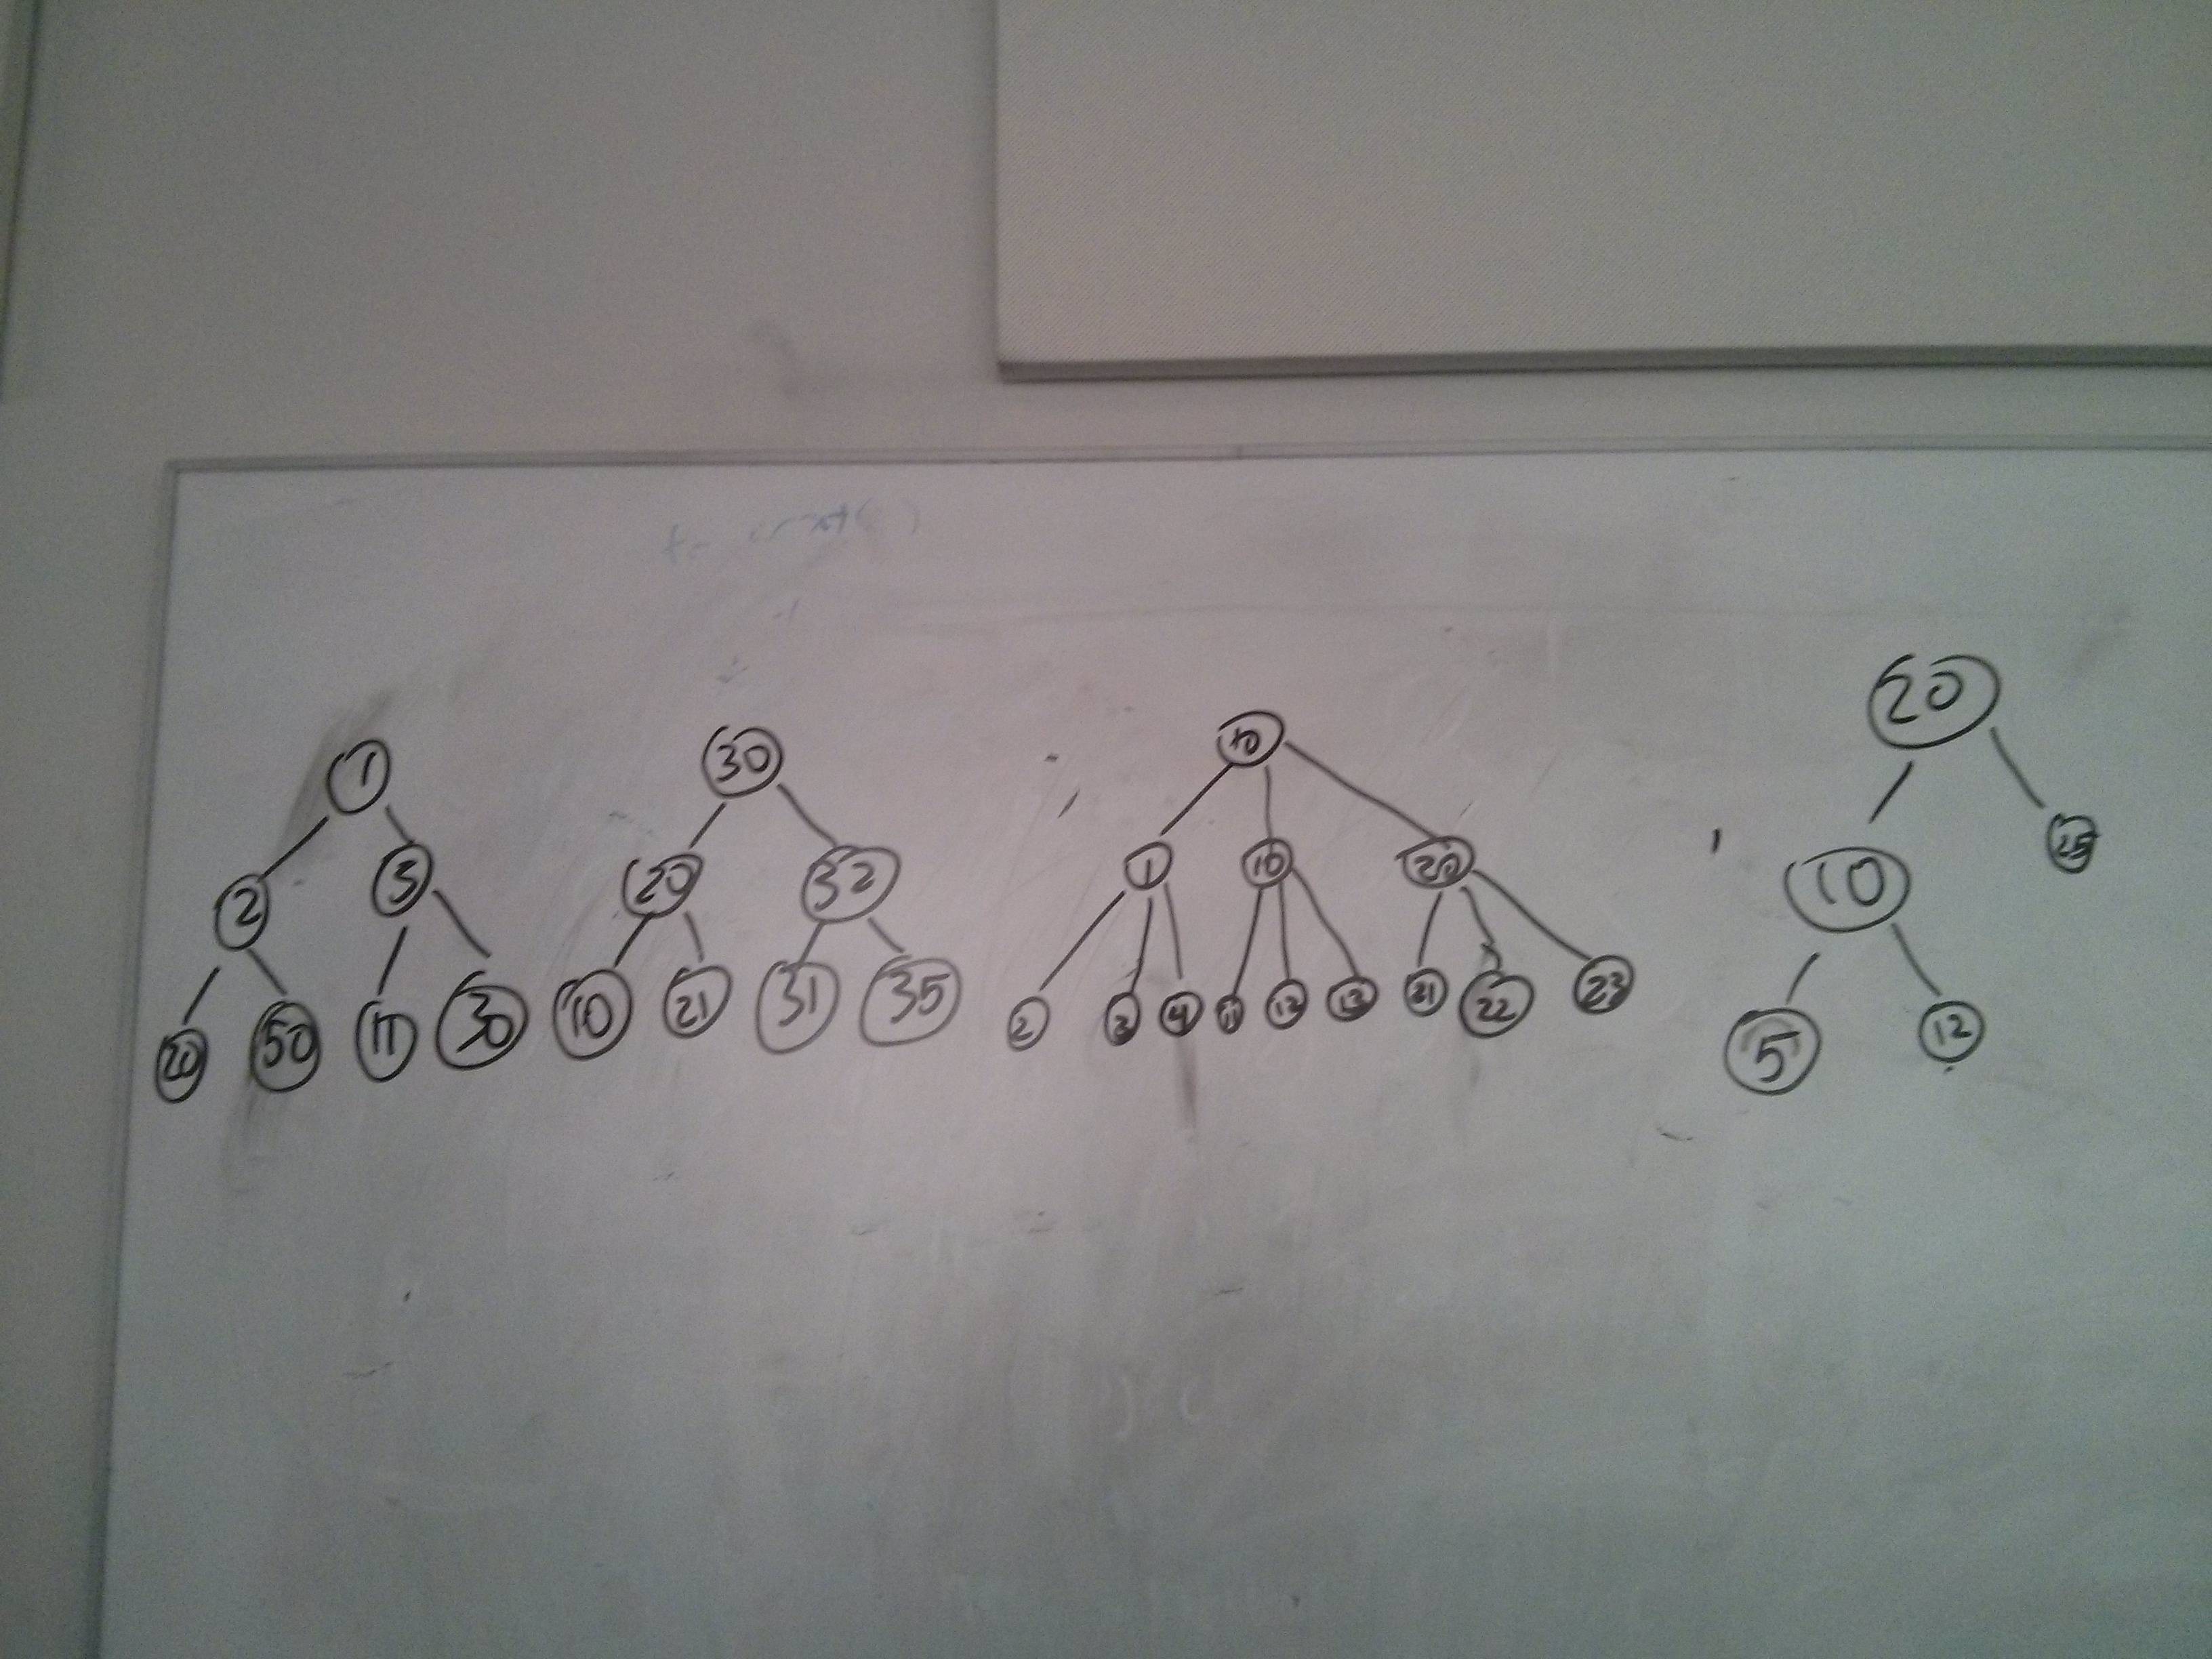 1
2 3
20 50 11 30
30
20 32
10 21 31 35
1 10 20
2 3 4 11 12 13 21 22 23
20
10 25
5 12